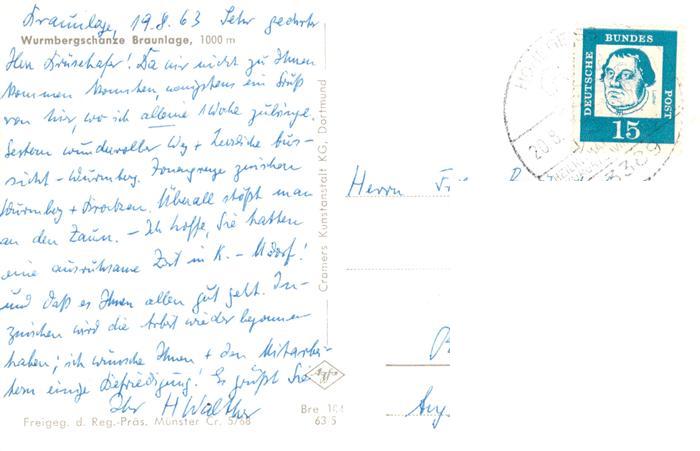 Braunlage, 19.8.63 Sehr geehrter
Wurmbergschanze Braunlage, 1000 m
Herr Krüschafer! Da wir nicht zu Ihnen
kommen konnten wenigstens ein Gruß
von hier, wo ich alleine 1 Woche zubringe.
Gestern wundervoller Weg + herrliche Aus-
sicht - Wurmberg. Zonengrenze zwischen
Wurmberg + Brocken. Überall stößt man
an den Zaun. - Ich hoffe, Sie hatten
eine ausruhsame Zeit in K. -
und daß es Ihnen allen gut geht. In-
zwischen wird die Arbeit wieder begonnen
haben; ich wünsche Ihnen + den Mitarbei-
tern einige Befriedigung! Es grüßt Sie
Ihr H Walther
Freigeg. d. Reg.-Präs. Münster Cr. 5/68
Cramers Kunstanstalt KG, Dortmund
Bre 104
63 5
Agfa
DEUTSCHE BUNDES POST
15
20.8.
3389
Herrn